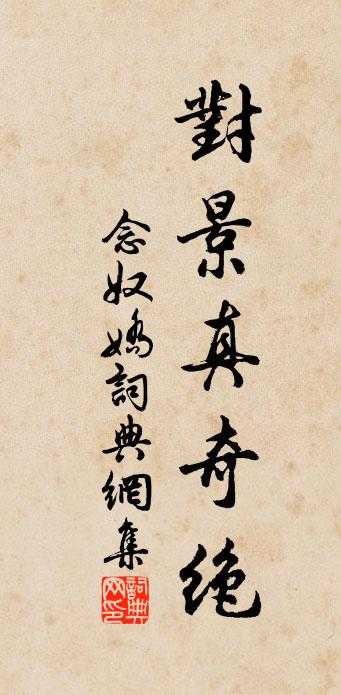 對景真奇絶
念奴嬌詞典網集
詞典網印